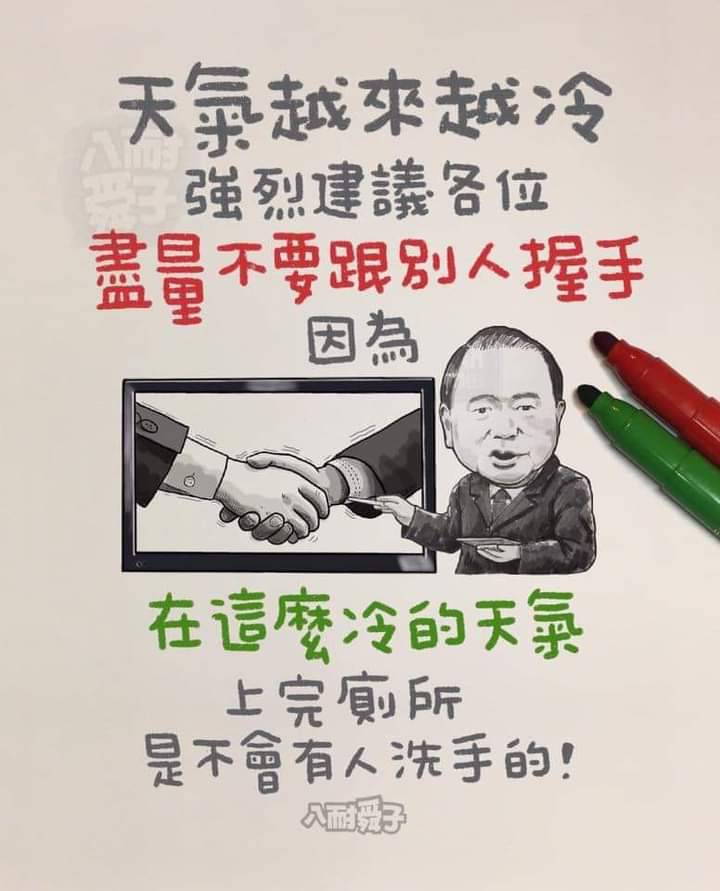 天氣越來越冷
八耐
舜子
強烈建議各位
盡量不要跟別人握手
因為
在這麼冷的天氣
上完廁所
是不會有人洗手的!
八耐舜子